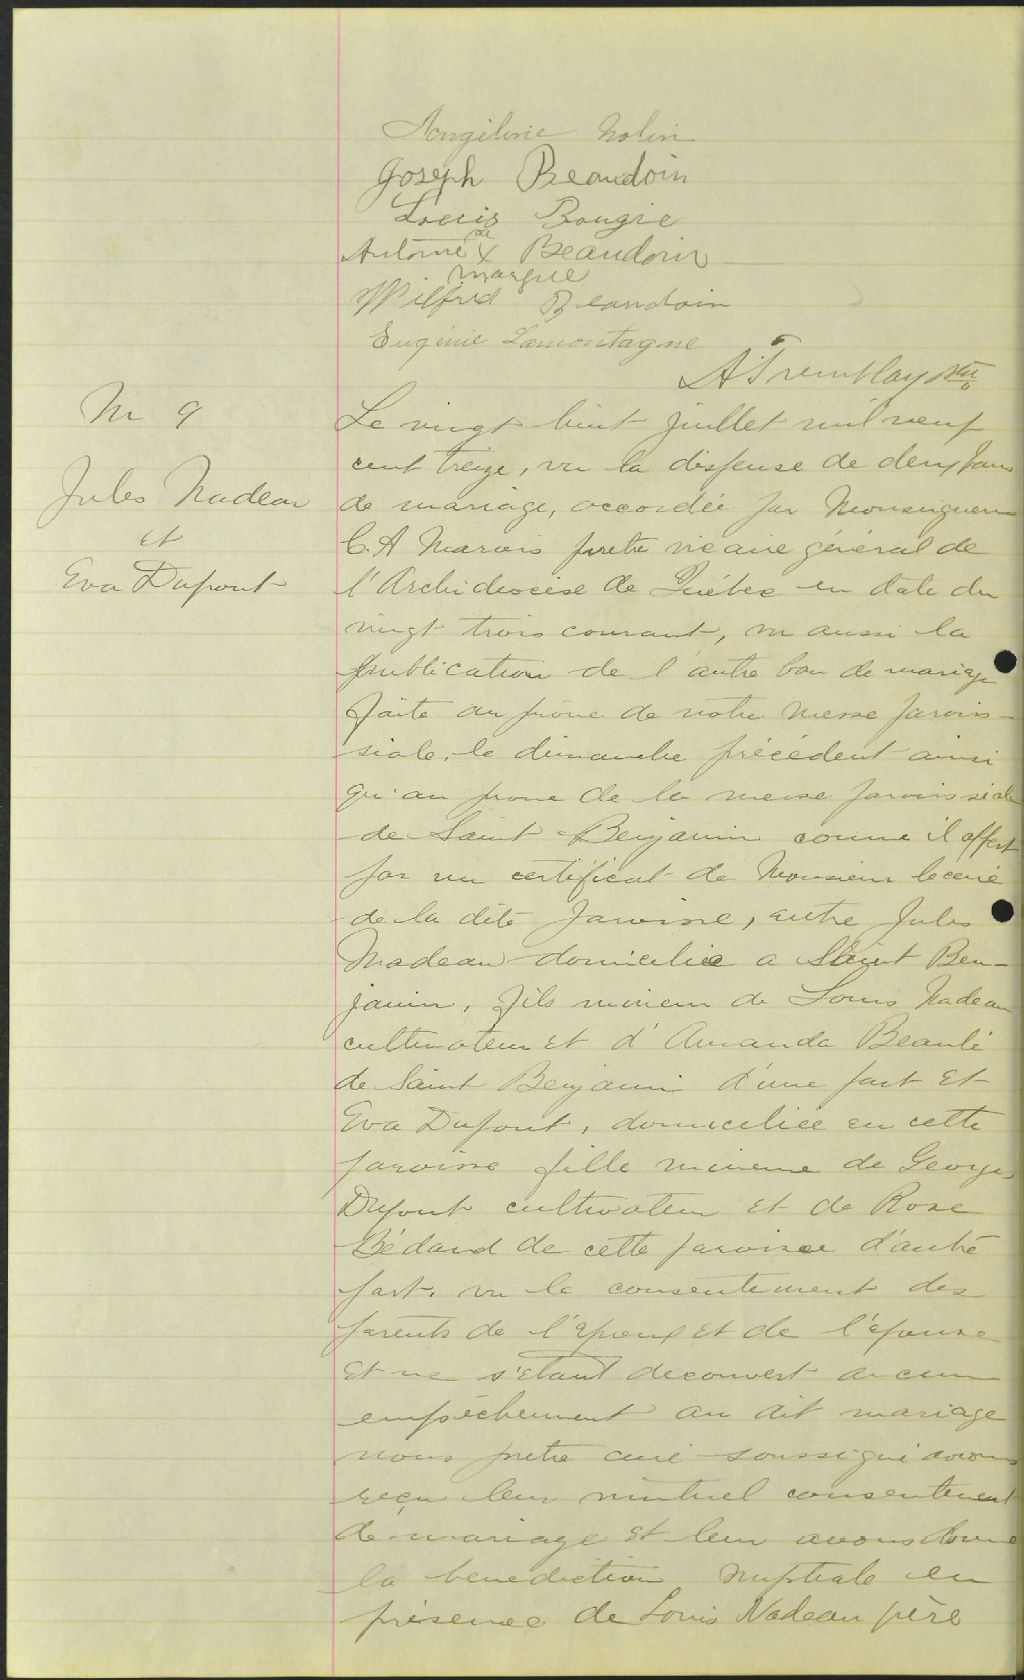 Angéline Nolin
Joseph Beaudoin
Louis Bougie
Antoine sa X Beaudoin
marque
Wilfrid Beaudoin
Eugénie Lamontagne
A Tremblay Ptre
M 9
Jules Nadeau
et
Eva Dupont
Le vingt huit juillet mil neuf
cent treize, vu la dispense de deux bans
de mariage, accordée par Monseigneur
C. A Marois pretre vicaire général de
l'Archidiocèse de Québec en date du
vingt trois courant, vu aussi la
publication de l'autre ban de mariage
faite au prône de notre messe parois-
siale, le dimanche précédent ainsi
qu'au prone de la messe paroissiale
de Saint Benjamin comme il appert
par un certificat de Monsieur le curé
de la dite paroisse, entre Jules
Nadeau domicilié a Saint Ben-
jamin, fils mineur de Louis Nadeau
cultivateur et d'Amanda Beaulé
de Saint Benjamin d'une part et
Eva Dupont, domiciliée en cette
paroisse fille mineure de George
Dupont cultivateur et de Rose
Bédard de cette paroisse d'autre
part, vu le consentement des
parents de l'époux et de l'épouse
et ne s'étant decouvert aucun
empêchement au dit mariage
nous pretre curé soussigné avons
reçu leur mutuel consentement
de mariage et leur avons donné
la benediction nuptiale en
présence de Louis Nadeau père